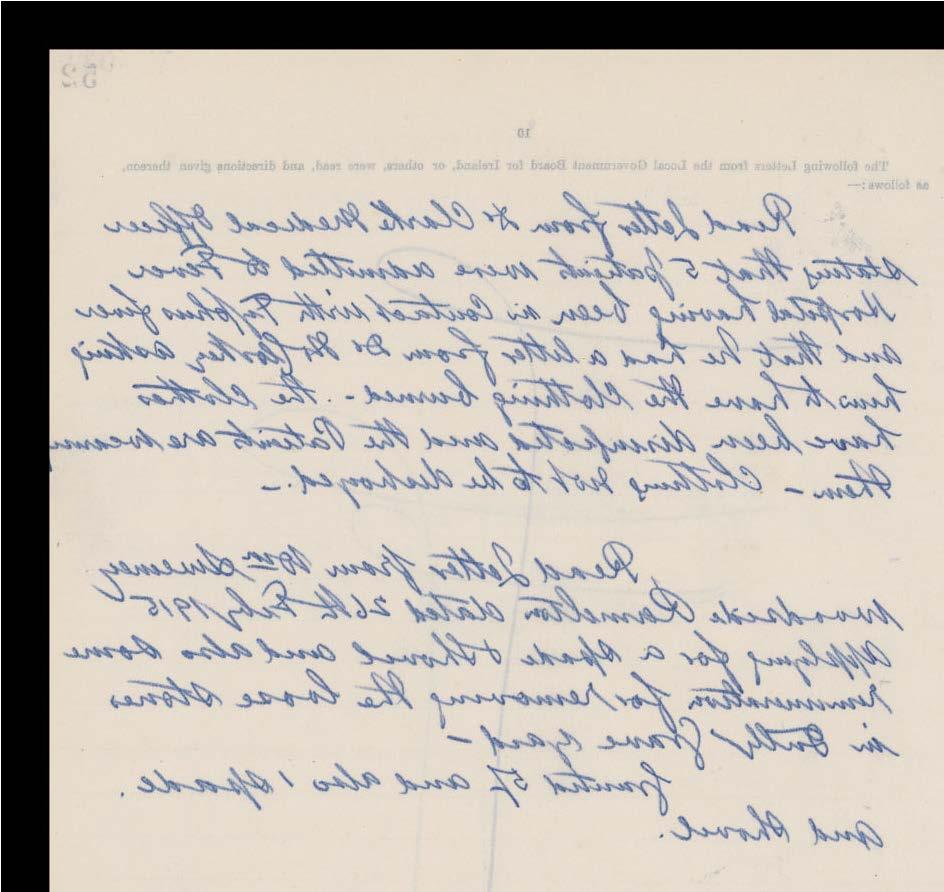 52
10
The following Letters from the Local Government Board for Ireland, or others, were read, and directions given thereon,
as follows:—
Read Letter from Dr Clarke Medical Officer
stating that 5 patients were admitted to Fever
Hospital having been in Contact with Typhus fever
and that he had a letter from Dr asking
him to have the Clothing burned -. the Clothes
have been disinfected and the Patients are wearing
them – Clothing not to be destroyed. –
Read Letter from Wm Sweeney
Woodside Ramelton dated 26th Feby 1915
applying for a Spade & Shovel and also some
remuneration for removing the loose stones
in Tully Grave yard –
Granted 5/ and also 1 Spade.
and Shovel.